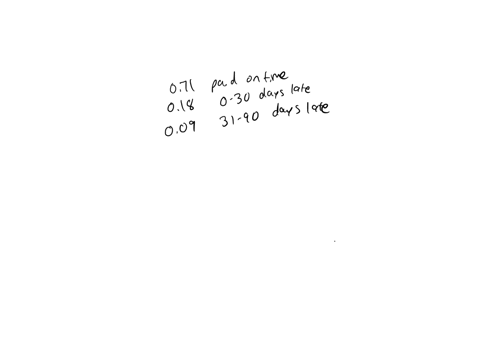 0.71 paid on time
0.18 0-30 days late
0.09 31-90 days late